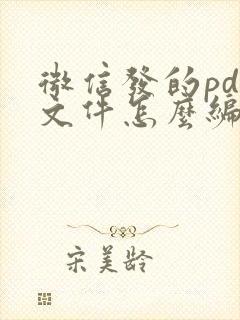 微信發的pd
文件怎麼編
宋美齡